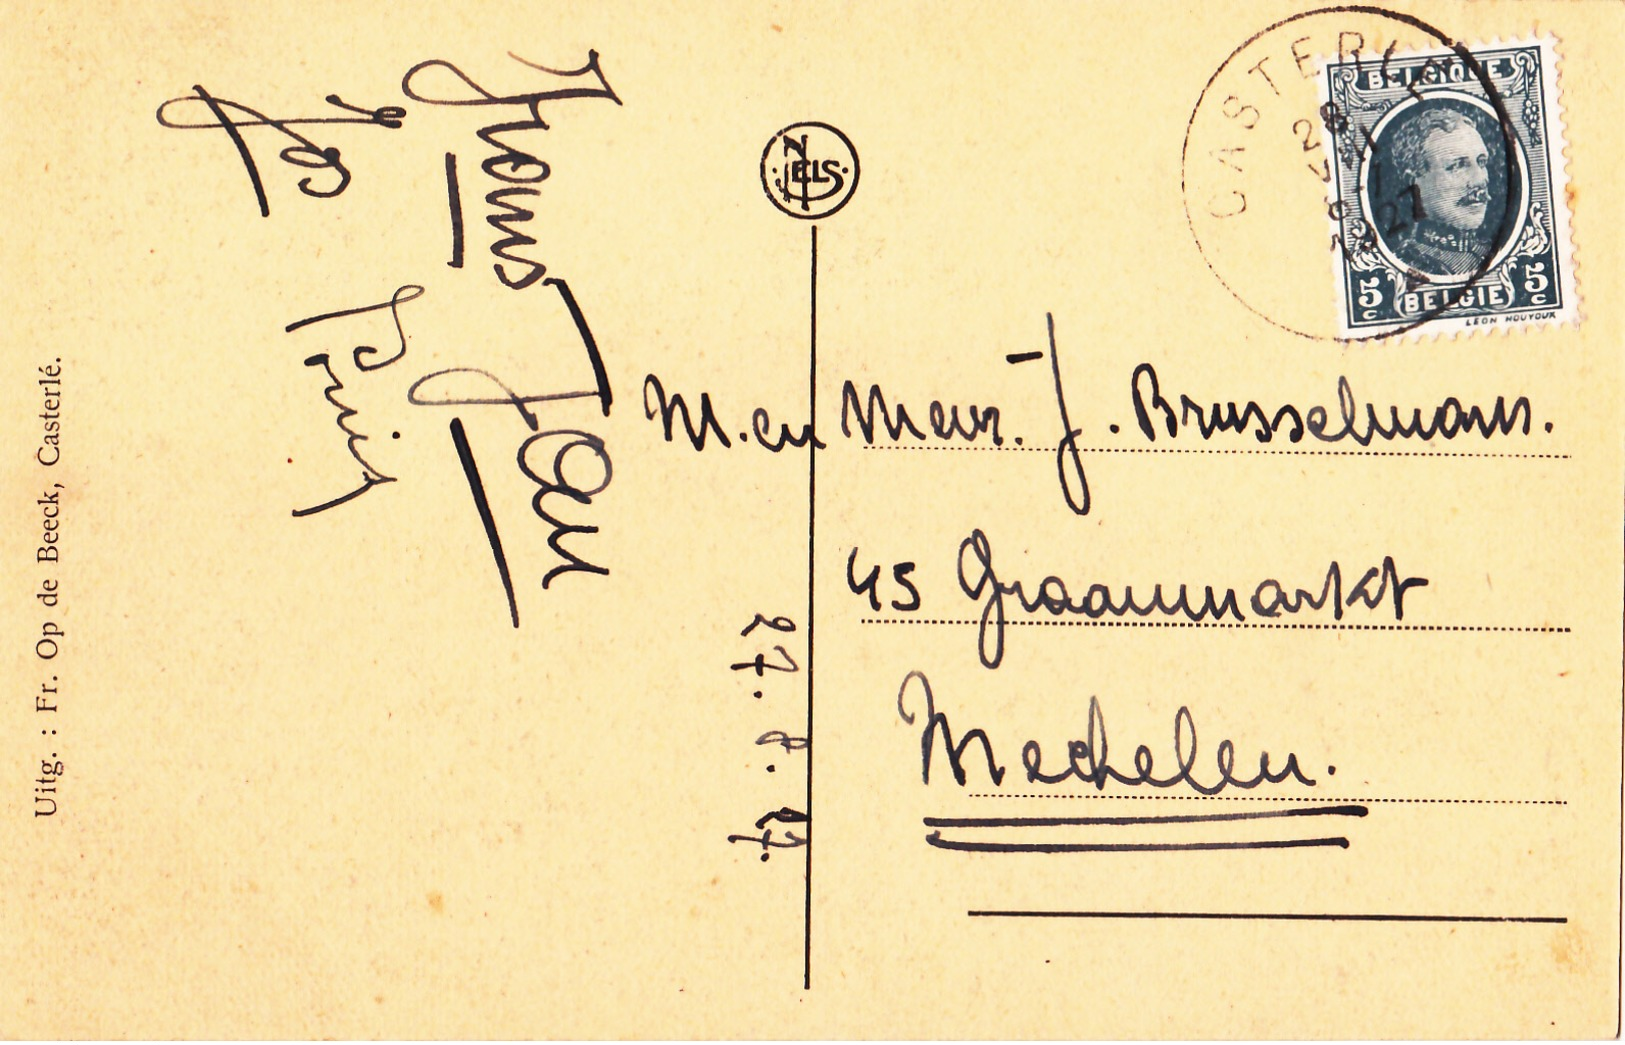 Frans
Jan
Jos
Uitg. : Fr. Op de Beeck, Casterlé.
27. 8. 27.
NELS
CASTERLE
28
1927
BELGIQUE
5c
5c
BELGIE
LEON HOUYOUX
M. en Mevr. J. Brusselmans.
45 Graanmarkt
Mechelen.